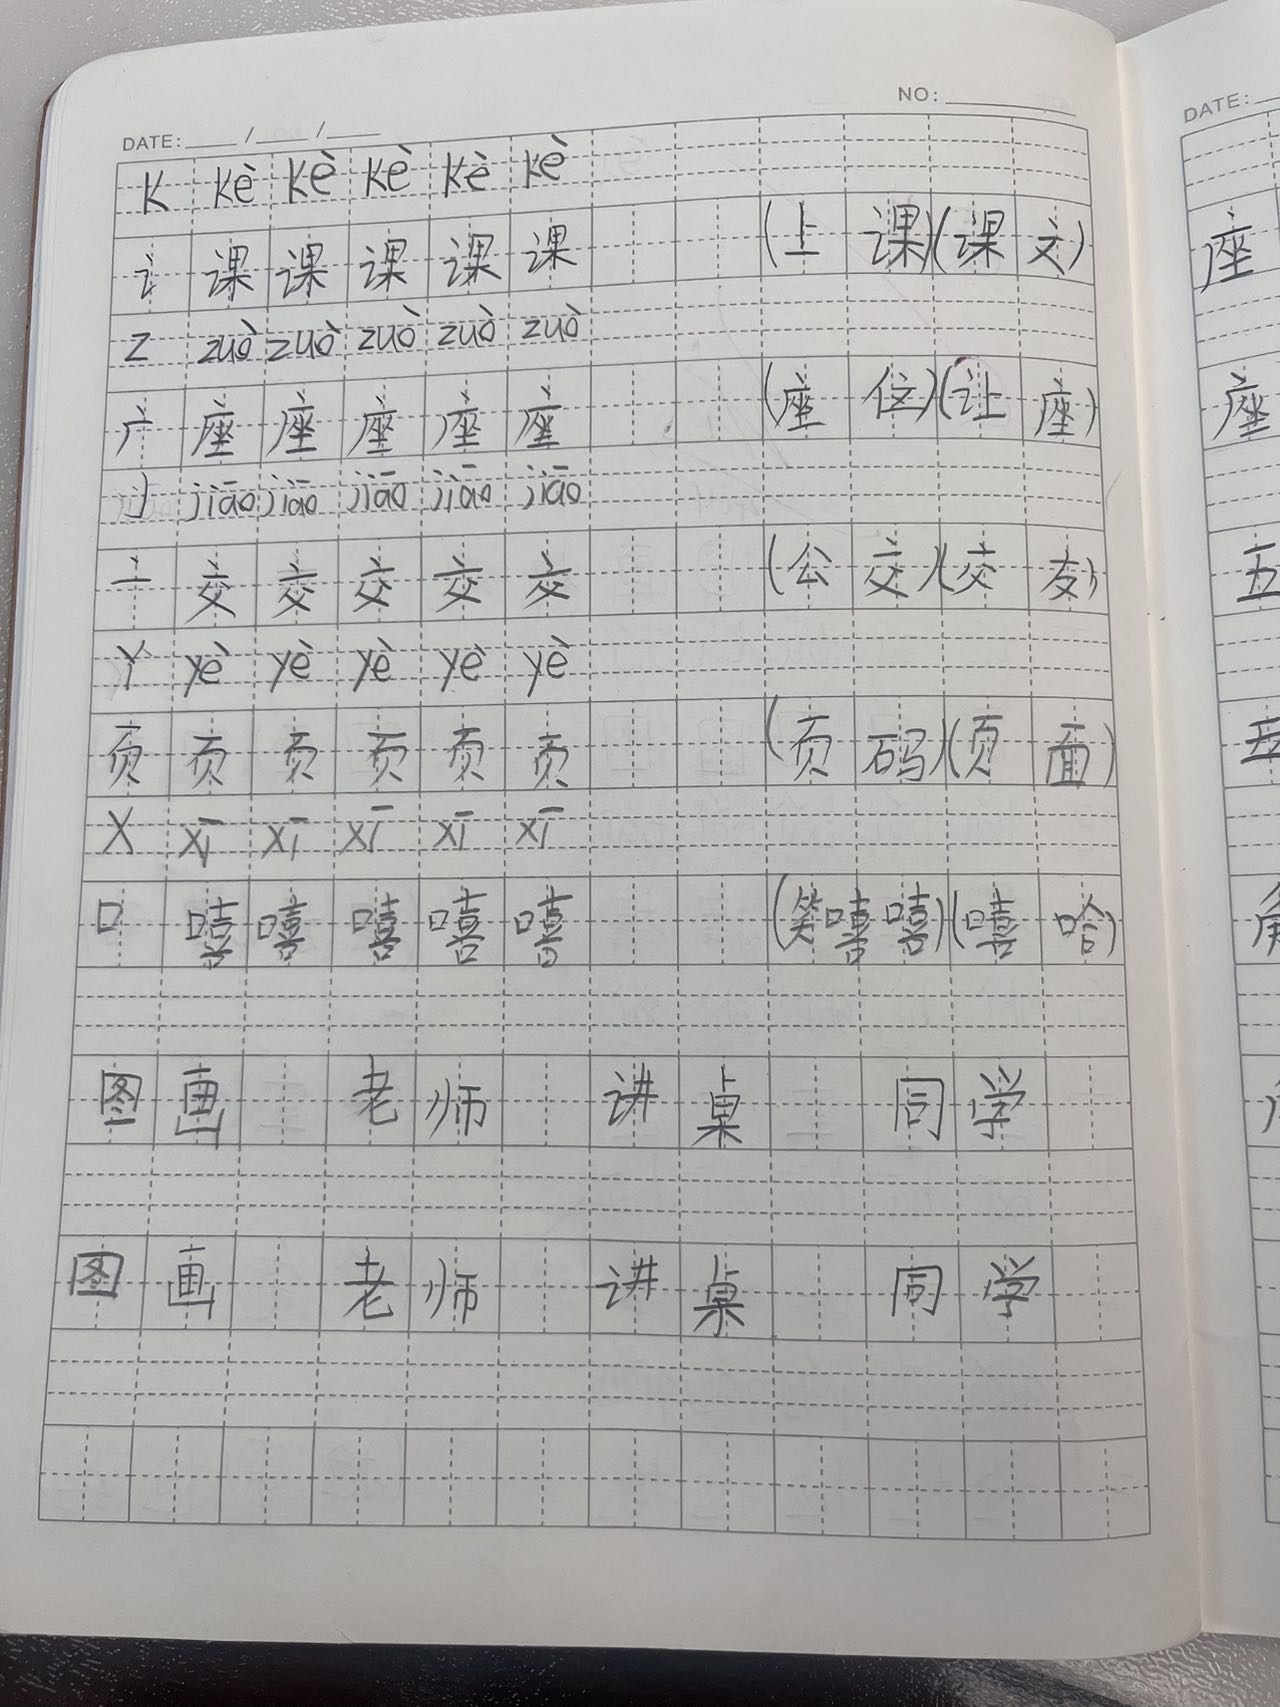 DATE: / / NO:
K kè kè kè kè kè
讠 课 课 课 课 课 (上课)(课文)
z zuò zuò zuò zuò zuò
广 座 座 座 座 座 (座位)(让座)
j jiāo jiāo jiāo jiāo jiāo
亠 交 交 交 交 交 (公交)(交友)
Y yè yè yè yè yè
页 页 页 页 页 页 (页码)(页面)
X xī xī xī xī xī
口 嘻 嘻 嘻 嘻 嘻 (笑嘻嘻)(嘻哈)
图画 老师 讲桌 同学
图画 老师 讲桌 同学
DATE:
座
座
五